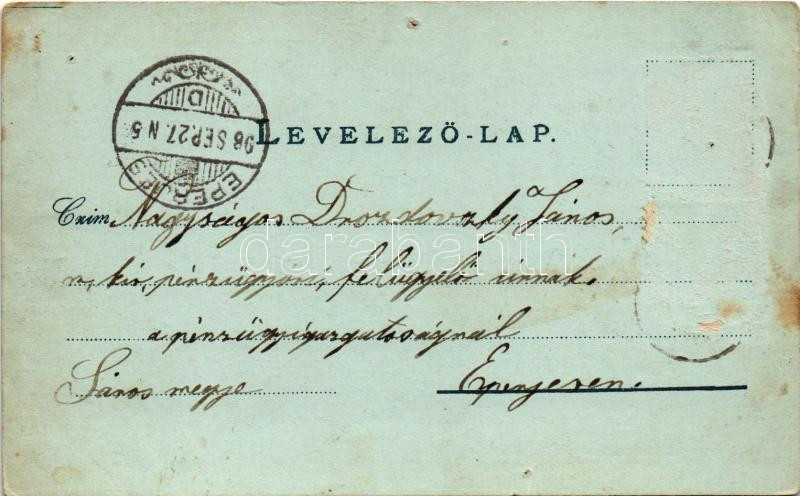 LEVELEZŐ-LAP.
EPERJES
98 SEP. 27. N 5
D
Czim Nagyságos Drozdovszky János,
m. kir. pénzügyőri, felügyelő úrnak.
a pénzügyigazgatóságnál
Sáros megye
Eperjesen.
darabanth